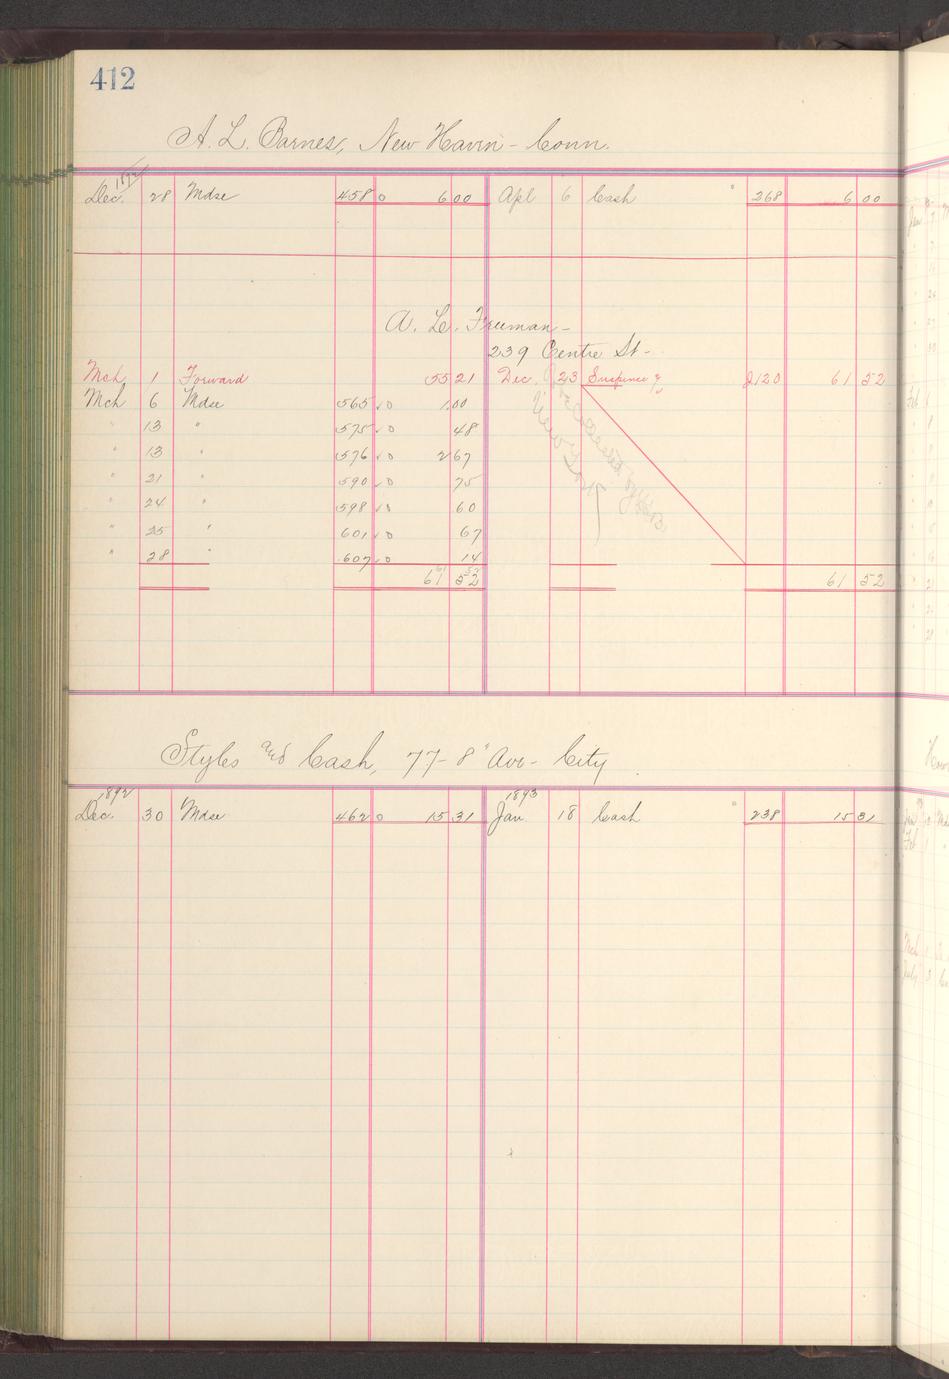 412
A. L. Barnes, New Havin - Conn.
1892
Dec. 28 Mdse 458 0 6 00 Apl 6 Cash " 268 6 00
A. L. Fruman -
239 Centre St -
Mch 1 Forward 55 21 Dec. 23 Suspence 2120 61 52
Mch 6 Mdse 565 √0 1.00
" 13 " 575 √0 48
" 13 " 576 √0 2 67
" 21 " 590 √0 75
" 24 " 598 √0 60
" 25 " 601 √0 67
" 28 " 607 √0 14
61 52 61 52
New York
Styles and Cash, 77-8" Ave - City
1892 1893
Dec. 30 Mdse 462 0 15 31 Jan 18 Cash " 238 15 31